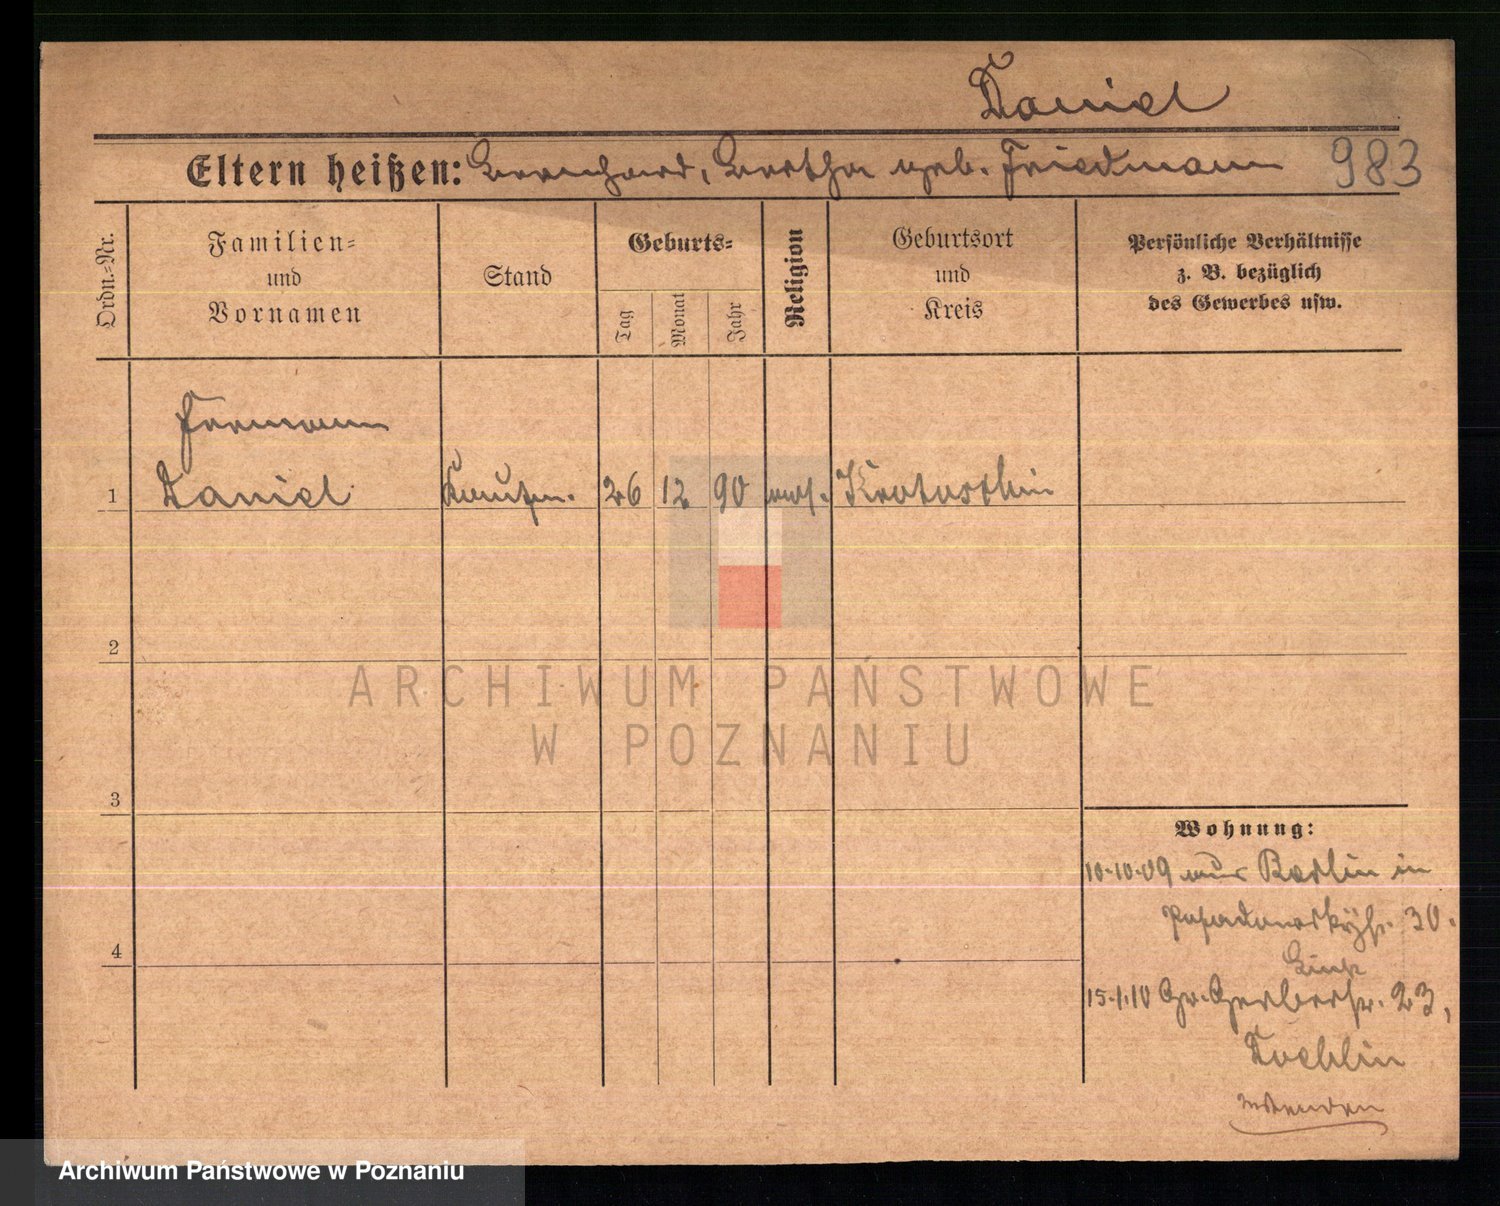 Daniel
Eltern heißen: Bernhard, Bertha geb. Friedmann 983
Ordn.=Nr.
Familien=
und
Vornamen
Stand
Geburts=
Tag
Monat
Jahr
Religion
Geburtsort
und
Kreis
Persönliche Verhältnisse
z. B. bezüglich
des Gewerbes usw.
Hermann
1 Daniel Kaufm. 26 12 90 mos. Krotoschin
2
ARCHIWUM PAŃSTWOWE
W POZNANIU
3
Wohnung:
10.10.09 aus Berlin in
Posadowskystr. 30.
4
15.1.10 Gr. Gerberstr. 23,
Archiwum Państwowe w Poznaniu